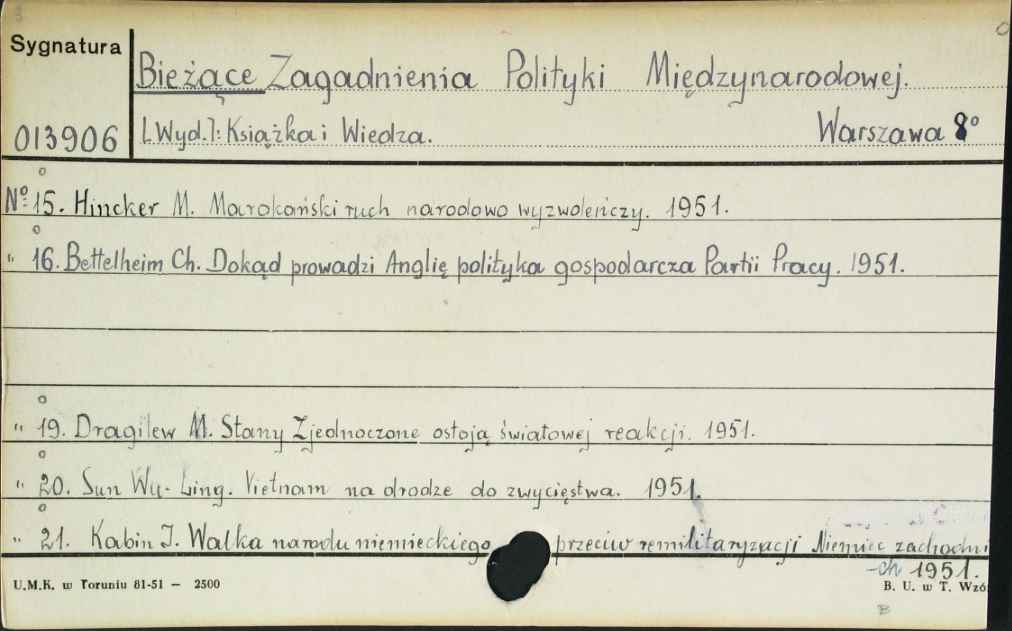 Sygnatura
Bieżące Zagadnienia Polityki Międzynarodowej.
013906
[Wyd.]: Książka i Wiedza. Warszawa 8°
№ 15. Hincker M. Marokański ruch narodowo wyzwoleńczy. 1951.
" 16. Bettelheim Ch. Dokąd prowadzi Anglię polityka gospodarcza Partii Pracy. 1951.
" 19. Dragilew M. Stany Zjednoczone ostoją światowej reakcji. 1951.
" 20. Sun Wu-Ling. Vietnam na drodze do zwycięstwa. 1951.
" 21. Kabin J. Walka narodu niemieckiego przeciw remilitaryzacji Niemiec zachodni
-ch 1951.
U.M.K. w Toruniu 81-51 — 2500
B. U. w T. Wzó
B